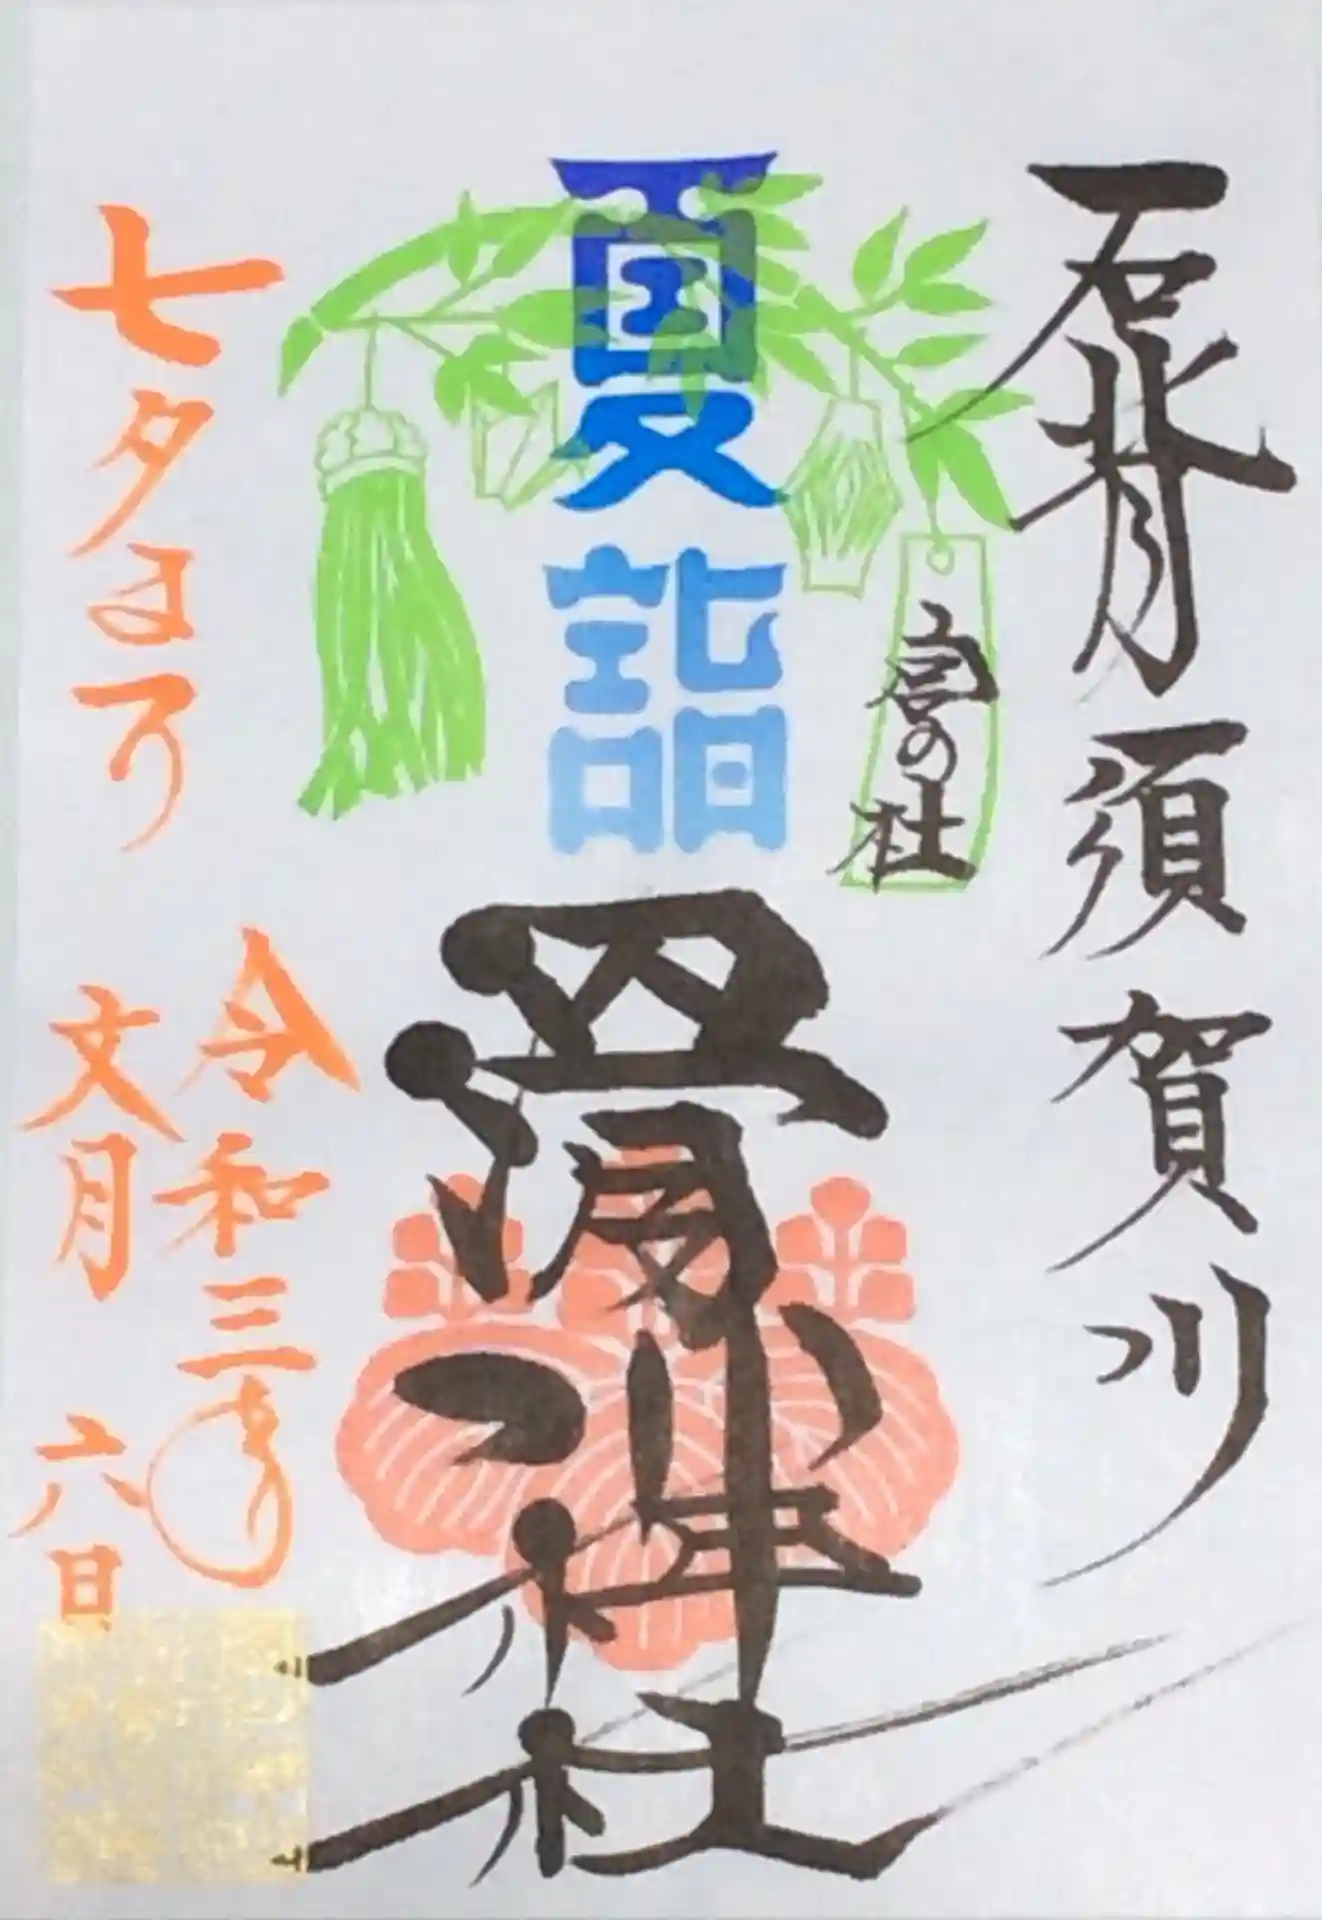 石背 須賀川
宮の杜
夏詣
神社
七夕まつり
令和三年
文月 六日